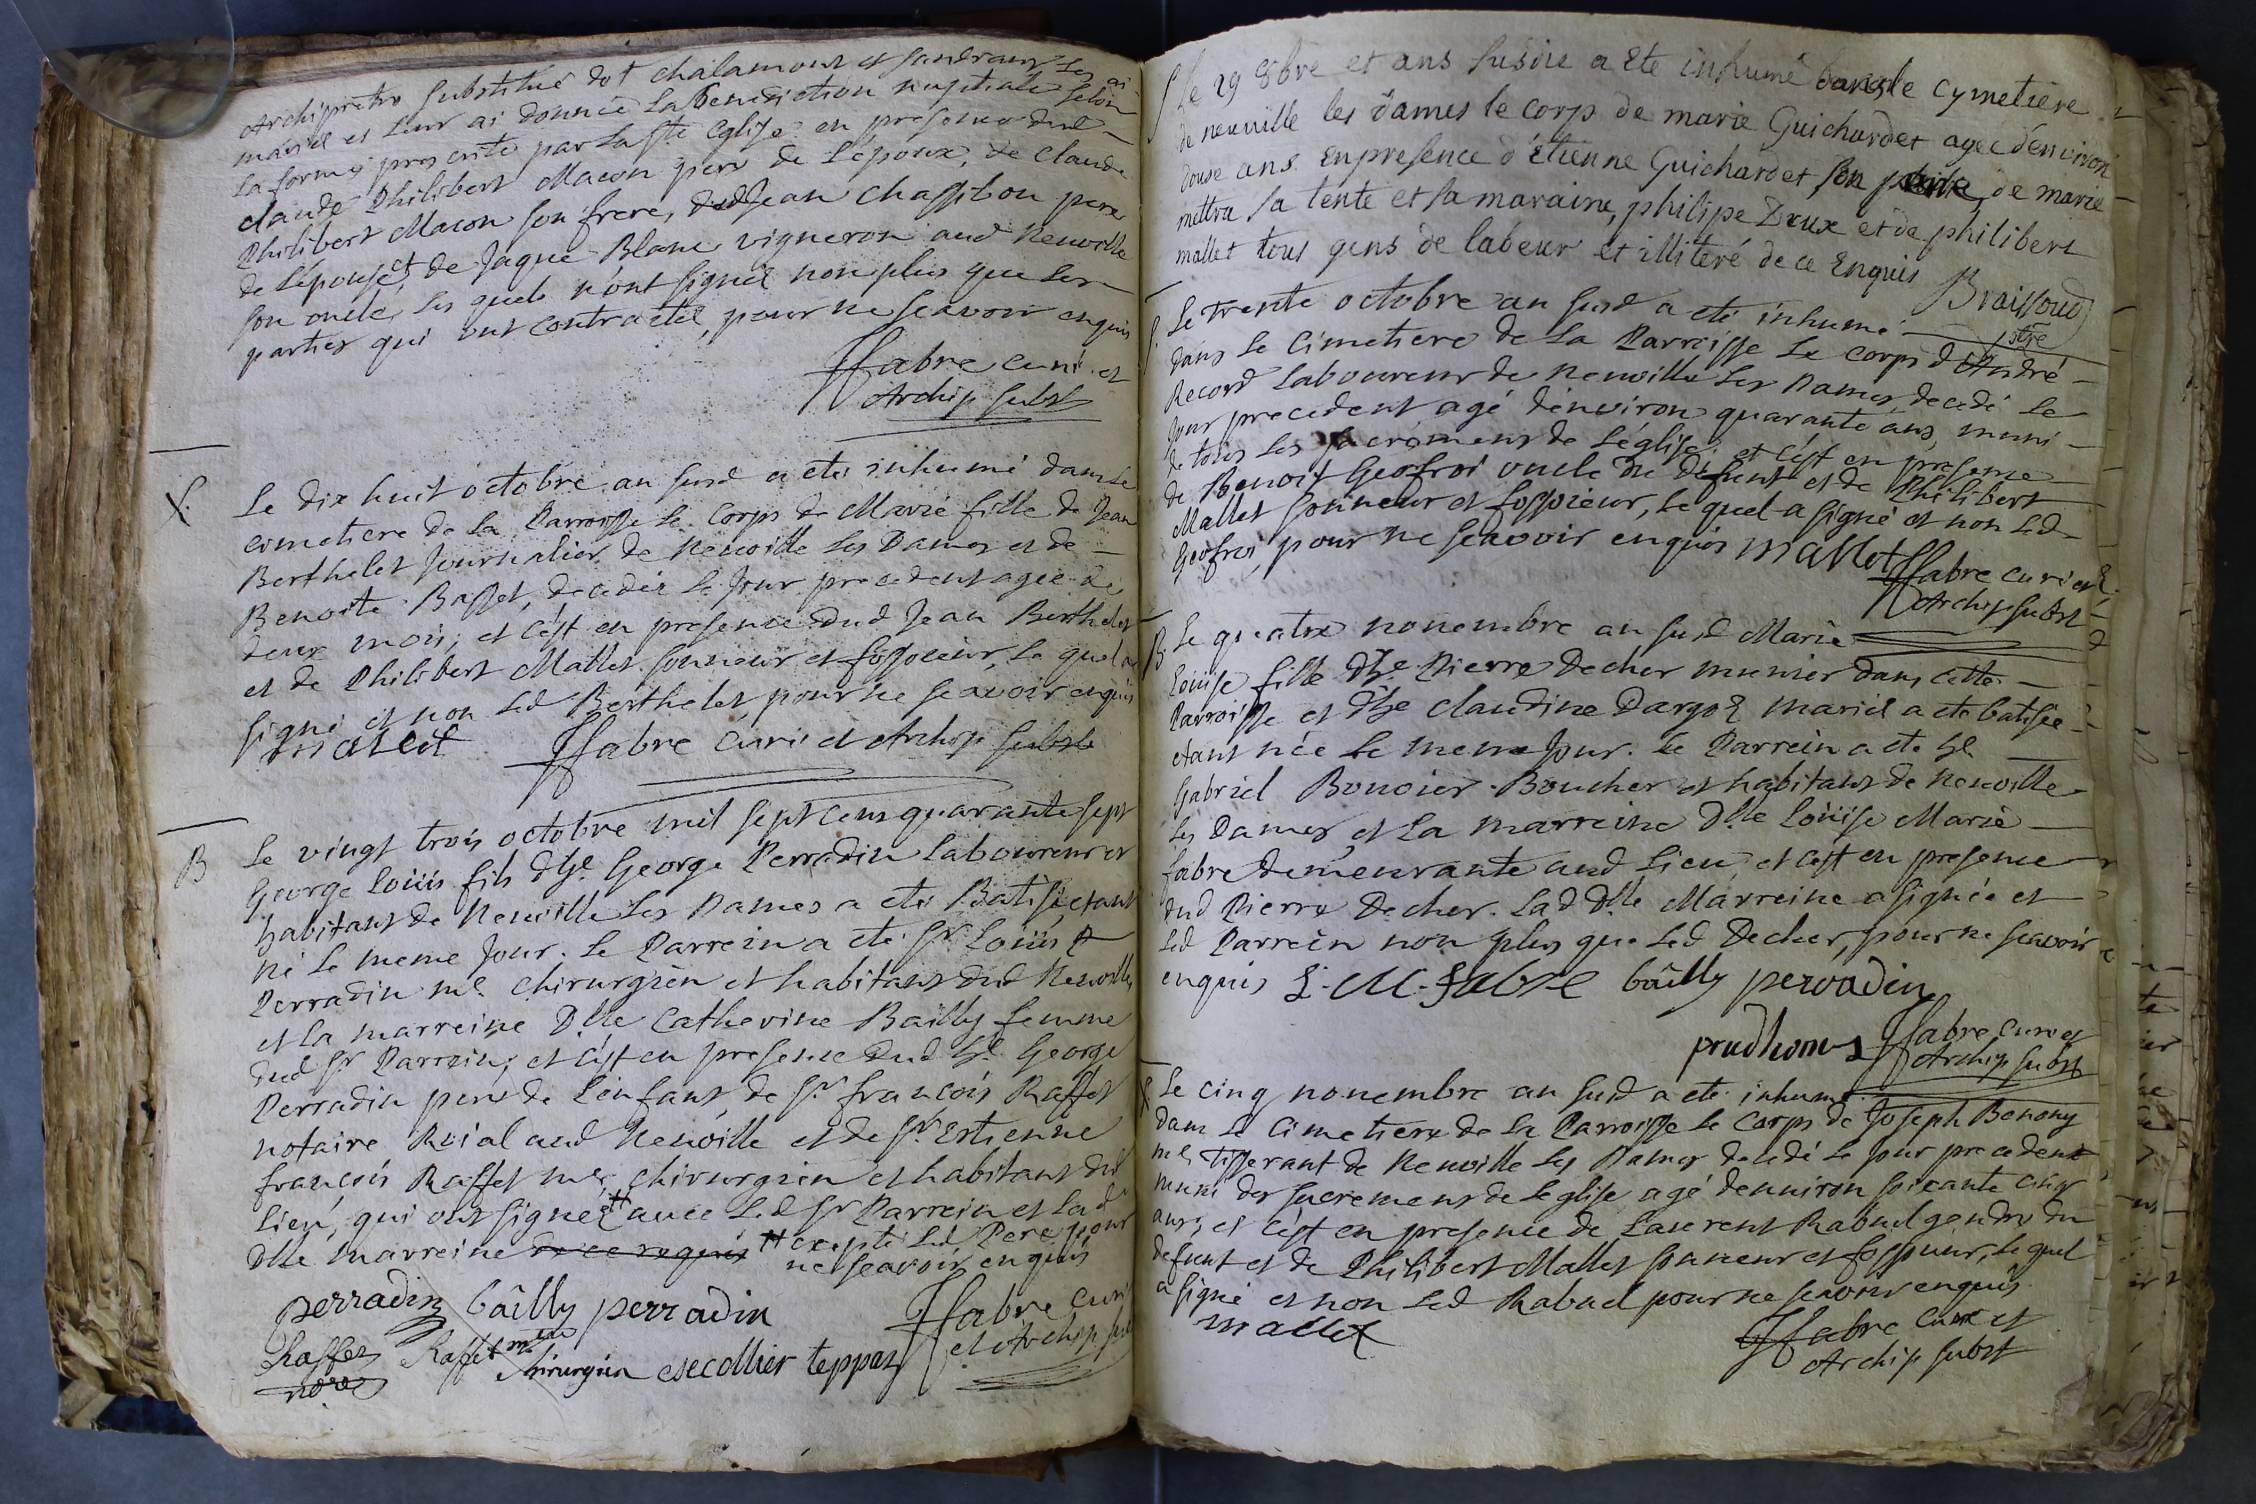 Archiprétre substitué dot chalamont et sandrans les ai
mariés et leur ai donnée la benediction nuptiale selon
la forme prescrite par la ste Eglise en presence dud
claude Philibert Macon pere de l'époux, de Claude
Philibert Macon son frere, dud Jean Chassibou pere
de l'épouse, et de Jaque Blanc vigneron aud Neuville
son oncle, les quels n'ont signés non plus que les
parties qui ont contractés, pour ne scavoir enquis
ffabre curé et
Archip subst
S. Le dix huit octobre an susd a eté inhumé dans le
cimetiere de la Parroisse le corps de Marie fille de Jean
Berthelet Journalier de Neuville les Dames et de
Benoite Basset, decedée le jour precedent agée de
deux mois, et c'est en presence dud Jean Berthelet
et de Philibert Mallet sonneur et fossoieur, le quel a
signé et non led Berthelet, pour ne scavoir enquis
mallet ffabre Curé et Archip subst
B Le vingt trois octobre mil sept cens quarante sept
George Loüis fils d'hle George Perradin laboureur et
habitant de Neuville les Dames a eté Batisé, etant
né le meme jour. Le Parrein a eté Sr Loüis
Perradin me chirurgien et habitant dud Neuville,
et la marreine Dlle Catherine Bailly femme
dud Sr Parrein, et c'est en presence dud hle George
Perradin pere de l'enfant de Sr francois Raffet
notaire Roial aud Neuville et de Sr Estienne
francois Raffet me chirurgien et habitant dud
lieu, qui ont signé # avec led Sr Parrein et lad
Dlle Marreine de ce requis # excepté led Pere pour
ne scavoir enquis
perradin baîlly perradin ffabre curé
Raffet Raffet mtre chirurgien esecollier teppaz et Archip subst
nore
S Le 29 8bre et ans susdit a Eté inhumé dans le cymetiére
de neuville les dames le corps de marie Guichardet agée d'environ
douse ans en presence d'étienne Guichardet son de marie
mettra sa tente et sa maraine, philipe Drux et de philibert
mallet tous gens de labeur et illiteré de ce Enquis Braissoud
S. Le trente octobre an susd a eté inhumé
dans le Cimetiere de la Parroisse le corps d'André
Record laboureur de Neuville les Dames, decedé le
jour precedent agé d'environ quarante ans, muni
de tous les sacremens de l'église, et c'est en presence
de Benoit Geofroi oncle du defunt et de Philibert
Mallet sonneur et fossoieur, le quel a signé et non led
Geofroi, pour ne scavoir enquis mallet ffabre curé et
Archip subst
B. Le quatre novembre an susd Marie
Loüise fille d'hle Pierre Decher munier dans cette
Parroisse et d'hle claudine Dargot mariés a eté batisée
etant née le meme jour. Le Parrein a eté hle
Gabriel Bouvier Boucher et habitant de Neuville
les Dames, et la marreine Dlle Loüise Marie
fabre demeurante aud lieu, et c'est en presence
dud Pierre Decher. Lad Dlle Marreine a signée et
led Parrein non plus que led Decher, pour ne scavoir
enquis L. M. fabre baîlly perradin
prudhomes ffabre Curé et
Archip subst
S. Le cinq novembre an susd a eté inhumé
dans le Cimetiere de la Parroisse le corps de Joseph Benony
me tisserant de Neuville les Dames decedé le jour precedent
muni des sacremens de leglise agé d'environ soixante cinq
ans, et c'est en presence de Laurent Rabuel gendre du
defunt et de Philibert Mallet sonneur et fossoieur, le quel
a signé et non led Rabuel pour ne scavoir enquis
mallet ffabre Curé et
Archip subst